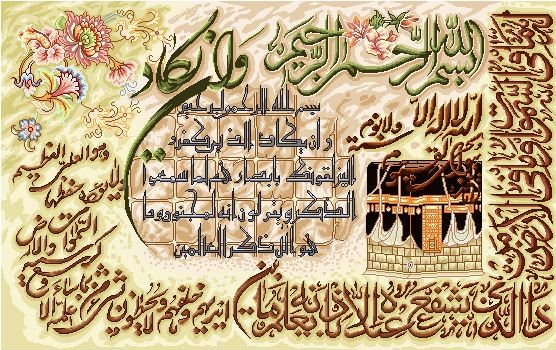 بسم الله الرحمن الرحيم
وان يكاد
بسم الله الرحمن الرحيم
وان يكاد الذين كفروا
ليزلقونك بابصارهم لما سمعوا
الذكر ويقولون انه لمجنون وما
هو الا ذكر للعالمين
الله لا اله الا
هو الحي القيوم
لا تاخذه سنة ولا نوم
له ما في السموات وما في الارض من
ذا الذي يشفع عنده الا باذنه يعلم ما بين
ايديهم وما خلفهم ولا يحيطون بشيء من
علمه الا بما شاء وسع
كرسيه
السموات والارض
ولا يؤده حفظهما
وهو العلي العظيم